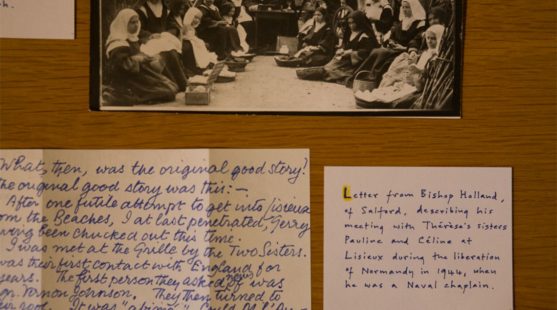 h.
What, then, was the original good story?
the original good story was this:—
After one futile attempt to get into Lisieux
om the Beaches, I at last penetrated, Jerry
aving been chucked out this time.
I was met at the Grille by the Two Sisters.
was their first contact with England for
years. The first person they asked news of was
gr. Vernon Johnson. They then turned to
Letter from Bishop Holland,
of Salford, describing his
meeting with Thérèse's sisters
Pauline and Céline at
Lisieux during the liberation
of Normandy in 1944, when
he was a Naval chaplain.